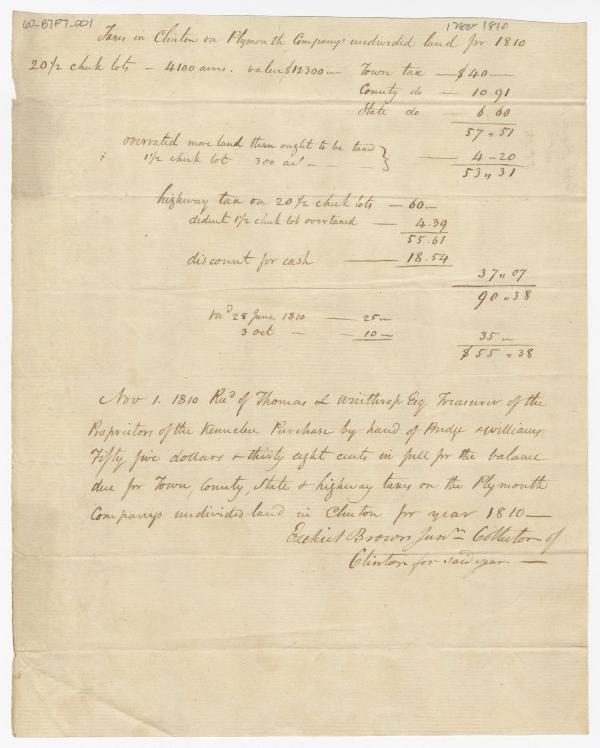 60-B7F7-001
1 Nov 1810
Taxes in Clinton on Plymouth Companys undivided land for 1810
20 1/2 check lots - 4100 acres. value $12300 — Town tax — $40 —
County do — 10.91
State do — 6.60
57 " 51
overrated more land then ought to be taxd
1 1/2 check lot 300 acs — 4 - 20
53 " 31
highway tax on 20 1/2 check lots — 60 —
deduct 1 1/2 check lot overtaxed — 4.39
55.61
discount for cash — 18.54
37 " 07
90 " 38
Recd 28 June 1810 — 25 —
3 Oct — 10 —
35 —
$55 " 38
Nov 1. 1810 Recd of Thomas L Winthrop Esq Treasurer of the
Proprietors of the Kennebec Purchase by hand of Bridge & Williams
Fifty five dollars & thirty eight cents in full for the balance
due for Town, County, State & highway taxes on the Plymouth
Companys undivided land in Clinton for year 1810 —
Ezekiel Brown Junr Collector of
Clinton for said year —